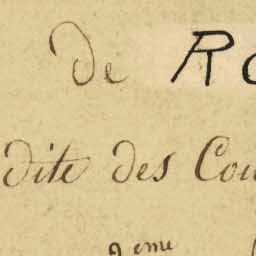 de Ro
dite des Cou
2eme